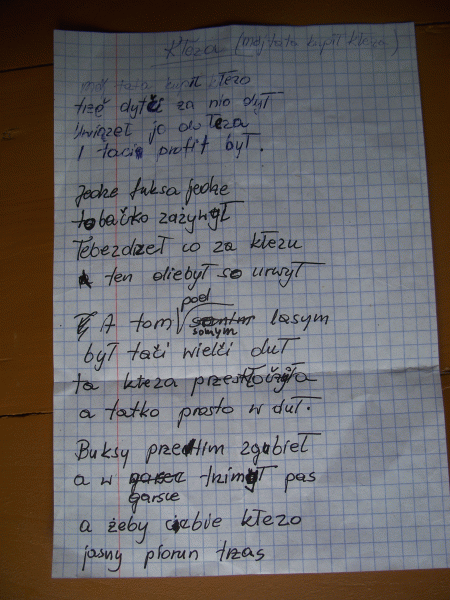 Kłeza (mój tata kupił kłeza)
mój tata kupił kłezo
trzë dytći za nio dył
Uwiązeł jo do łeza
I taci profit był.
Jedze fuksa jedze
tobačko zażywył
Tebezdrzeł co za kłezu
ten diebył so urwył
A tam pod somym lasym
był tači wielči duł
ta kłeza przeskočëła
a tatko prosto w duł.
Buksy przedtim zgubieł
a w garsce trzimył pas
a żeby ciebie kłezo
jasny piorun trzas